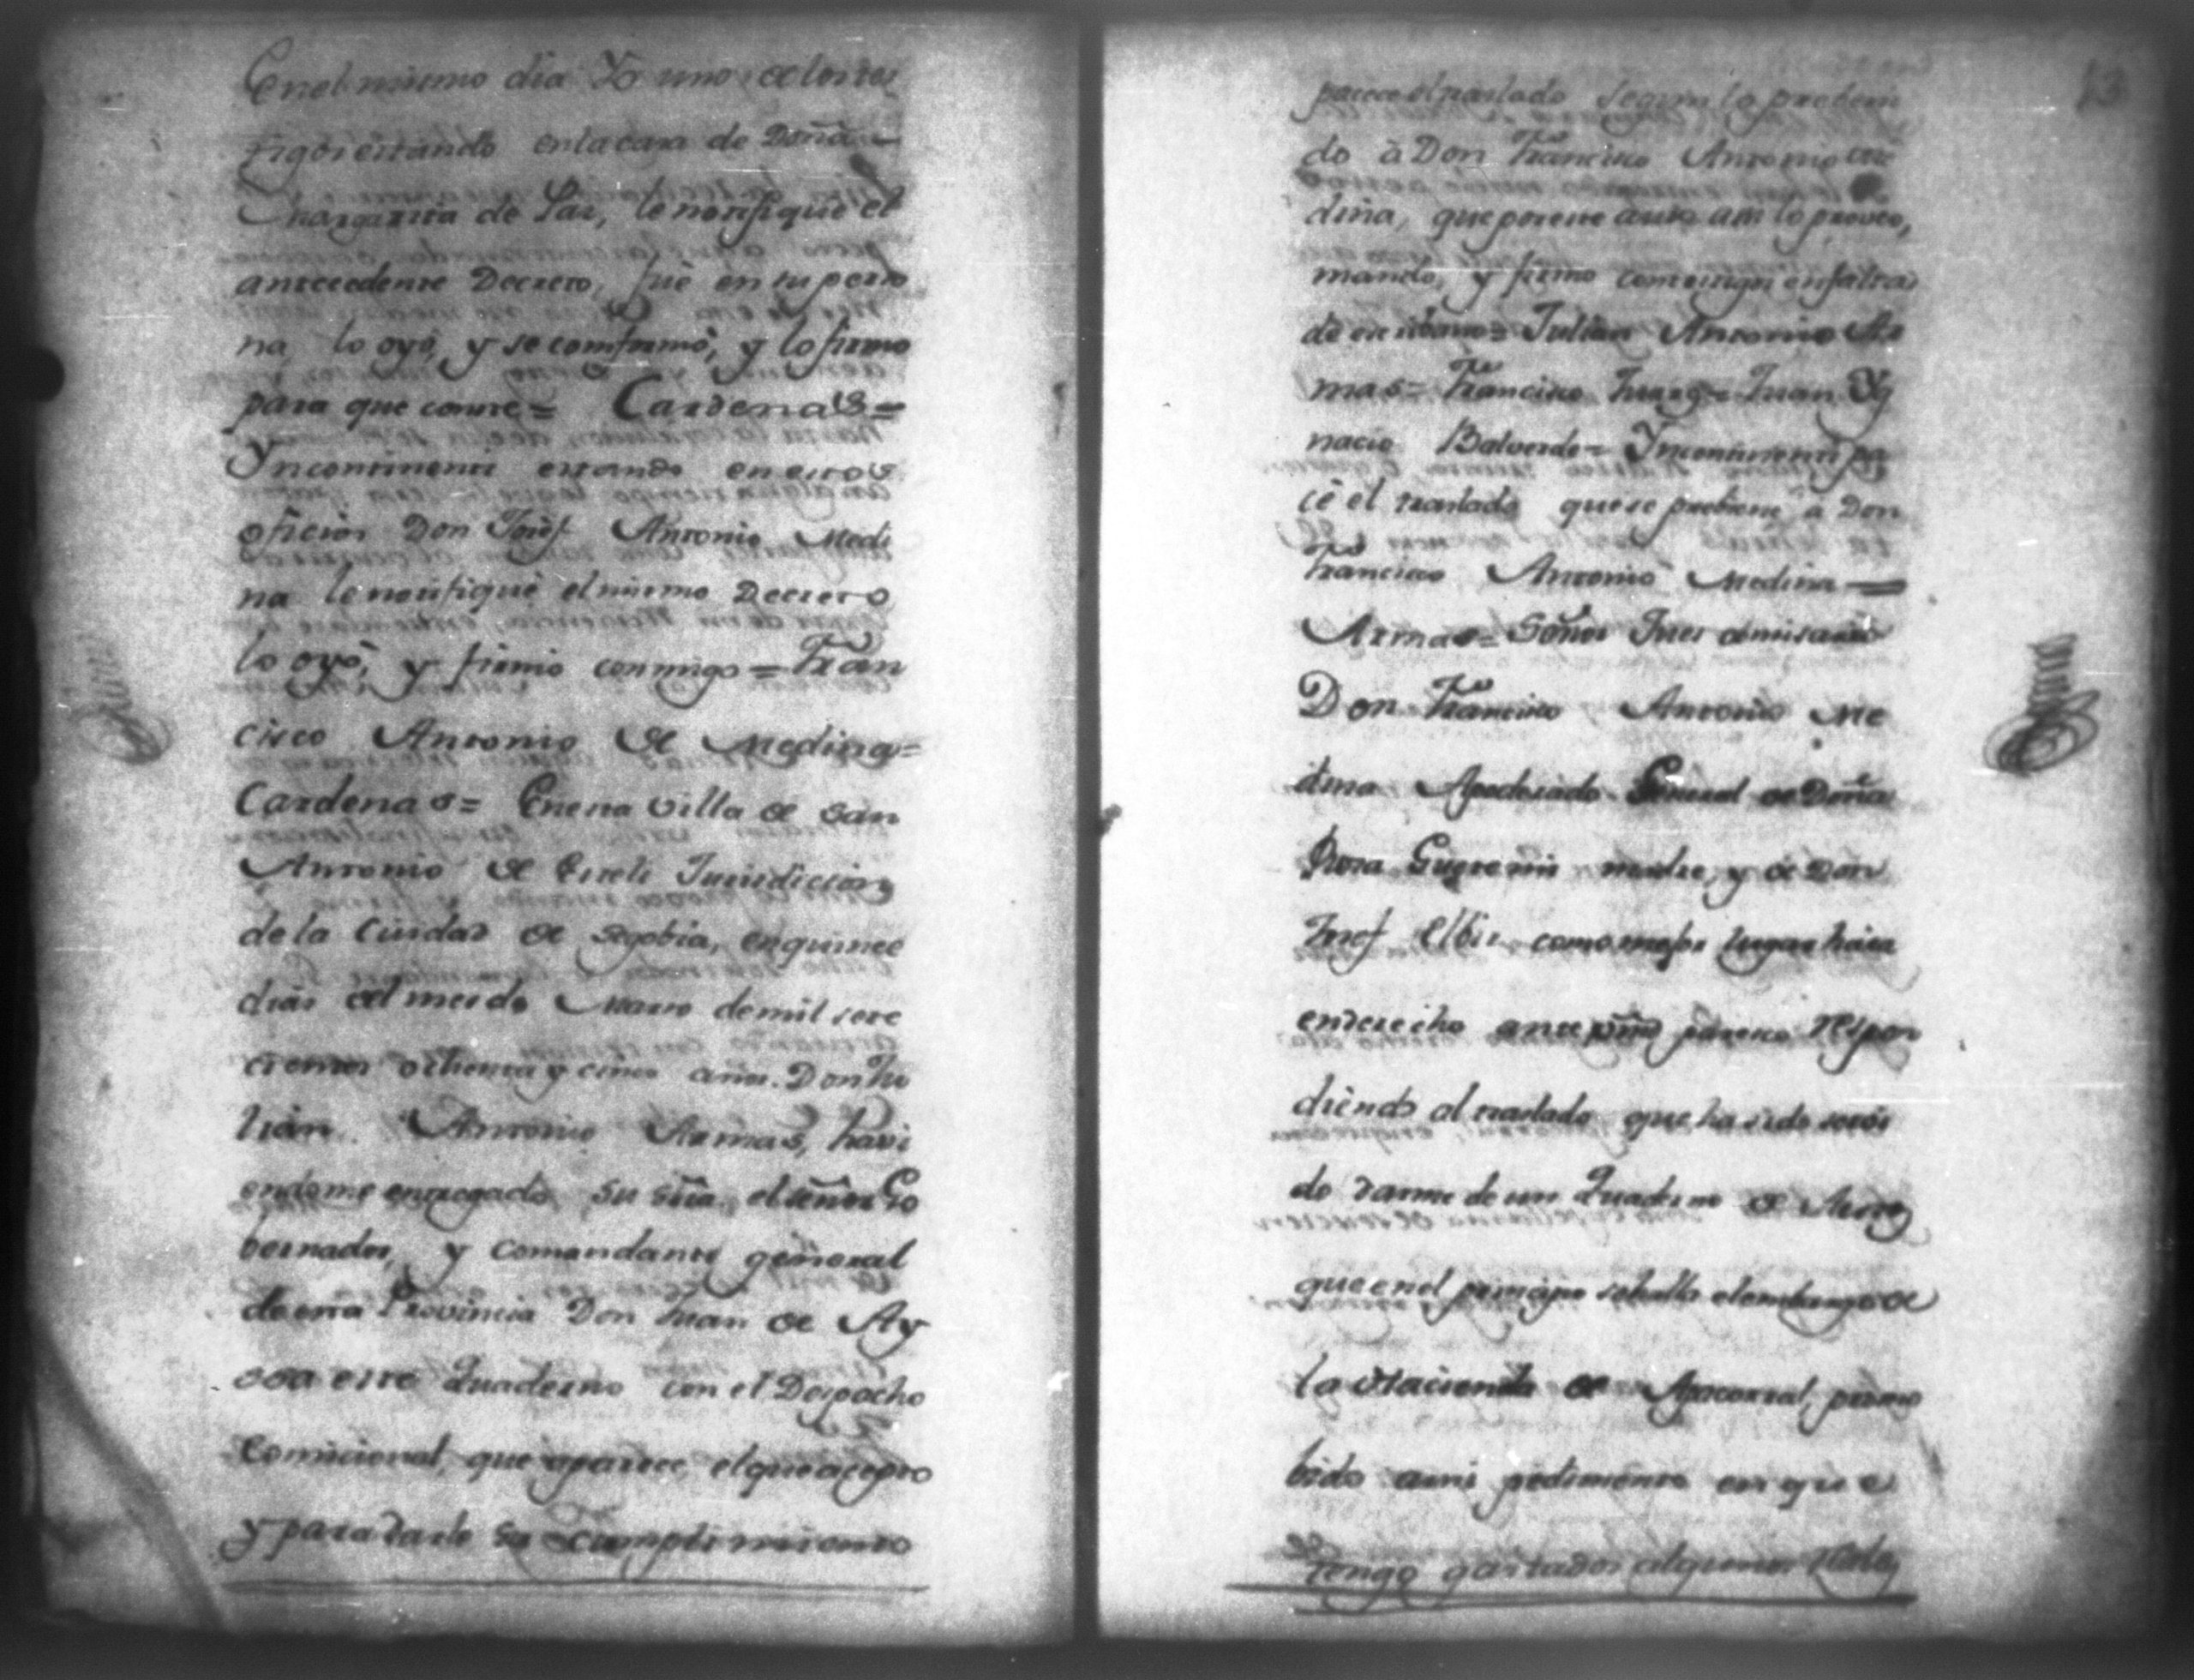 En el mismo dia Yo uno de los tes
tigos estando en la casa de Doña
Margarita de Paz, le notifiqué el
antecedente Decreto, fuè en su perso
na lo oyó, y se comformó, y lo firmo
para que conste = Cardenas =
Yncontinenti estando en estos
oficios Don Josef Antonio Medi
na le notifiqué el mismo Decreto
lo oyó, y firmó conmigo = Fran
cisco Antonio de Medina =
Cardenas = En esta villa de San
Antonio de Esteli Jurisdicion
de la Ciudad de Segobia, en quince
dias del mes de Marzo de mil sete
cientos ochenta y cinco años. Don Ju
lian Antonio Armas, havi
endome entregado su sria el señor Go
bernador, y comandante general
de esta Provincia Don Juan de Ay
ssa este Quaderno con el Despacho
Comicional, que aparece, el que acepto
y para darle su cumplimiento
13
pacece el traslado segun lo prebeni
do à Don Francisco Antonio Me
dina, que por este auto asi lo proveo,
mando, y firmo con testigos en falta
de escribano = Julian Antonio Ar
mas = Francisco Juarez = Juan Yg
nacio Balverde = Yncontinenti pa
cè el traslado que se prebiene à Don
Francisco Antonio Medina =
Armas = Señor Juez comisario
Don Francisco Antonio Me
dina Apoderado General de Doña
Rosa Guerrero madre, y de Don
Josef Elbir como mejor lugar haia
en derecho ante vmd paresco respon
diendo al traslado que ha sido servi
do darme de un Quaderno de Autos
que en el principio se halla el embargo de
la Hacienda de Apacorral, prove
hido a mi pedimento en que
tengo gastados algunos reales